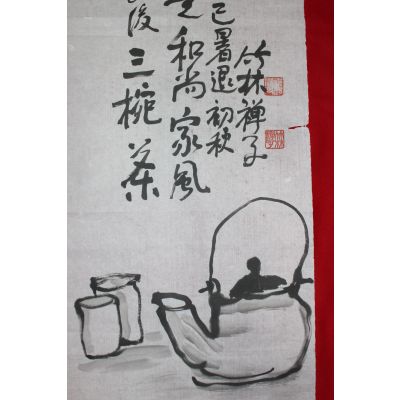 後三椀茶
和尚家風
巳暑退初秋
竹林禪子